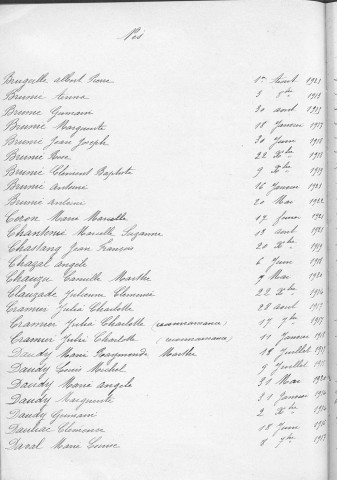 Nés
Brugeille albert Pierre 1er Août 1921
Brunie Anna 3 8bre 1913
Brunie Germain 30 août
Brunie Marguerite 18 Janvier 1917
Brunie Jean Joseph 30 Juin 1918
Brunie Rose 22 Xbre 1918
Brunie Clement Baptiste 9 Xbre 1919
Brunie Antoine 16 Janvier 1921
Brunie antoine 20 Mai 1922
Ceron Marie Marcelle 17 février 1921
Chanteix Marcelle Suzanne 18 août 1921
Chastang Jean François 20 Xbre 1919
Chazal angèle 6 Juin 1918
Chauzu Camille Marthe 9 Mai 1920
Clauzade Julienne Clemence 22 Xbre 1914
Cramier Julia Charlotte 28 août 1917
Cramier Julia Charlotte (reconnaissance) 17 7bre 1917
Cramier Julia Charlotte (reconnaissance) 11 Janvier 1918
Daudy Marie Raymonde Marthe 18 Juillet 1917
Daudy Louis Michel 9 Juillet
Daudy Marie angèle 31 Mai 1920
Daudy Marguerite 31 Janvier 1914
Daudy Germain 2 Xbre 1914
Dauliac Clemence 18 Juin 1916
Daval Marie Louise 8 7bre 1917